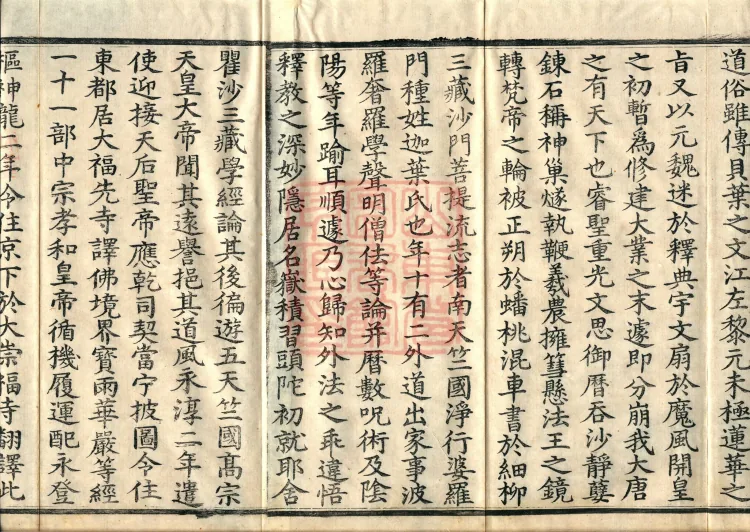 道俗雖傳貝葉之文江左黎元未極蓮華之
旨又以元魏迷於釋典宇文扇於魔風開皇
之初暫為修建大業之末遽即分崩我大唐
之有天下也睿聖重光文思御曆吞沙靜孽
鍊石稱神巢燧執鞭羲農擁篲懸法王之鏡
轉梵帝之輪被正朔於蟠桃混車書於細柳
三藏沙門菩提流志者南天竺國淨行婆羅
門種姓迦葉氏也年十有二外道出家事波
羅奢羅學聲明僧佉等論并曆數呪術及陰
陽等年踰耳順遽乃心歸知外法之乖違悟
釋教之深妙隱居名嶽積習頭陀初就耶舍
瞿沙三藏學經論其後徧遊五天竺國髙宗
天皇大帝聞其遠譽挹其道風永淳二年遣
使迎接天后聖帝應乾司契當宁披圖令住
東都居大福先寺譯佛境界寶雨華嚴等經
一十一部中宗孝和皇帝循機履運配永登
樞神龍二年令住京下於大崇福寺翻譯此